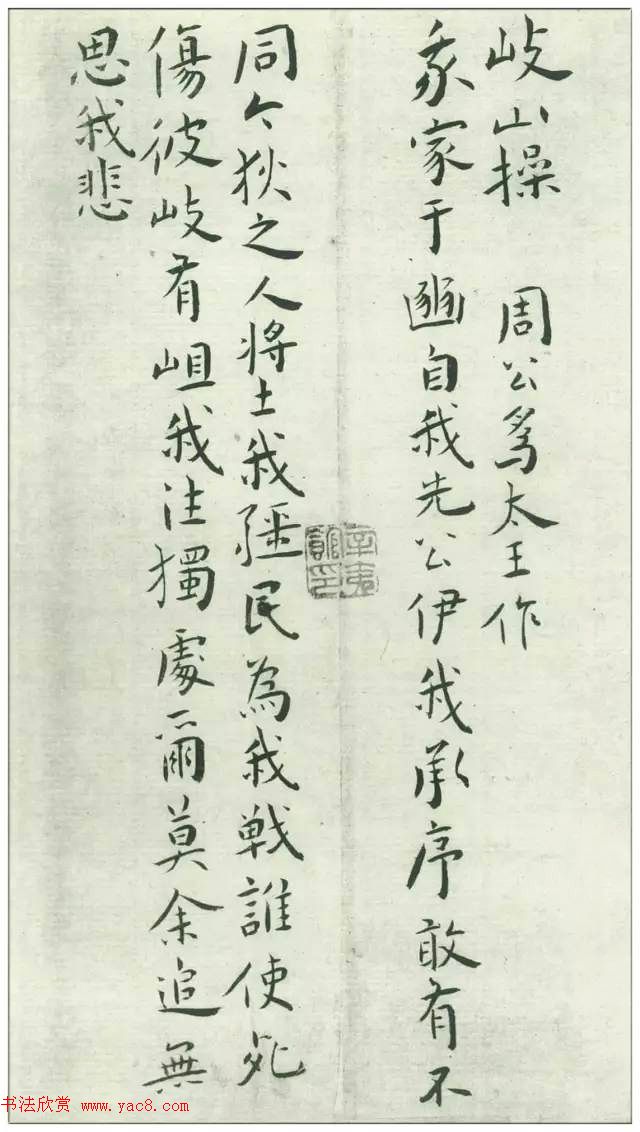 岐山操 周公爲太王作
我家于豳自我先公伊我承序敢有不
同今狄之人将土我疆民為我戰誰使死
傷彼岐有岨我往獨處爾莫余追無
思我悲
书法欣赏 www.yac8.com